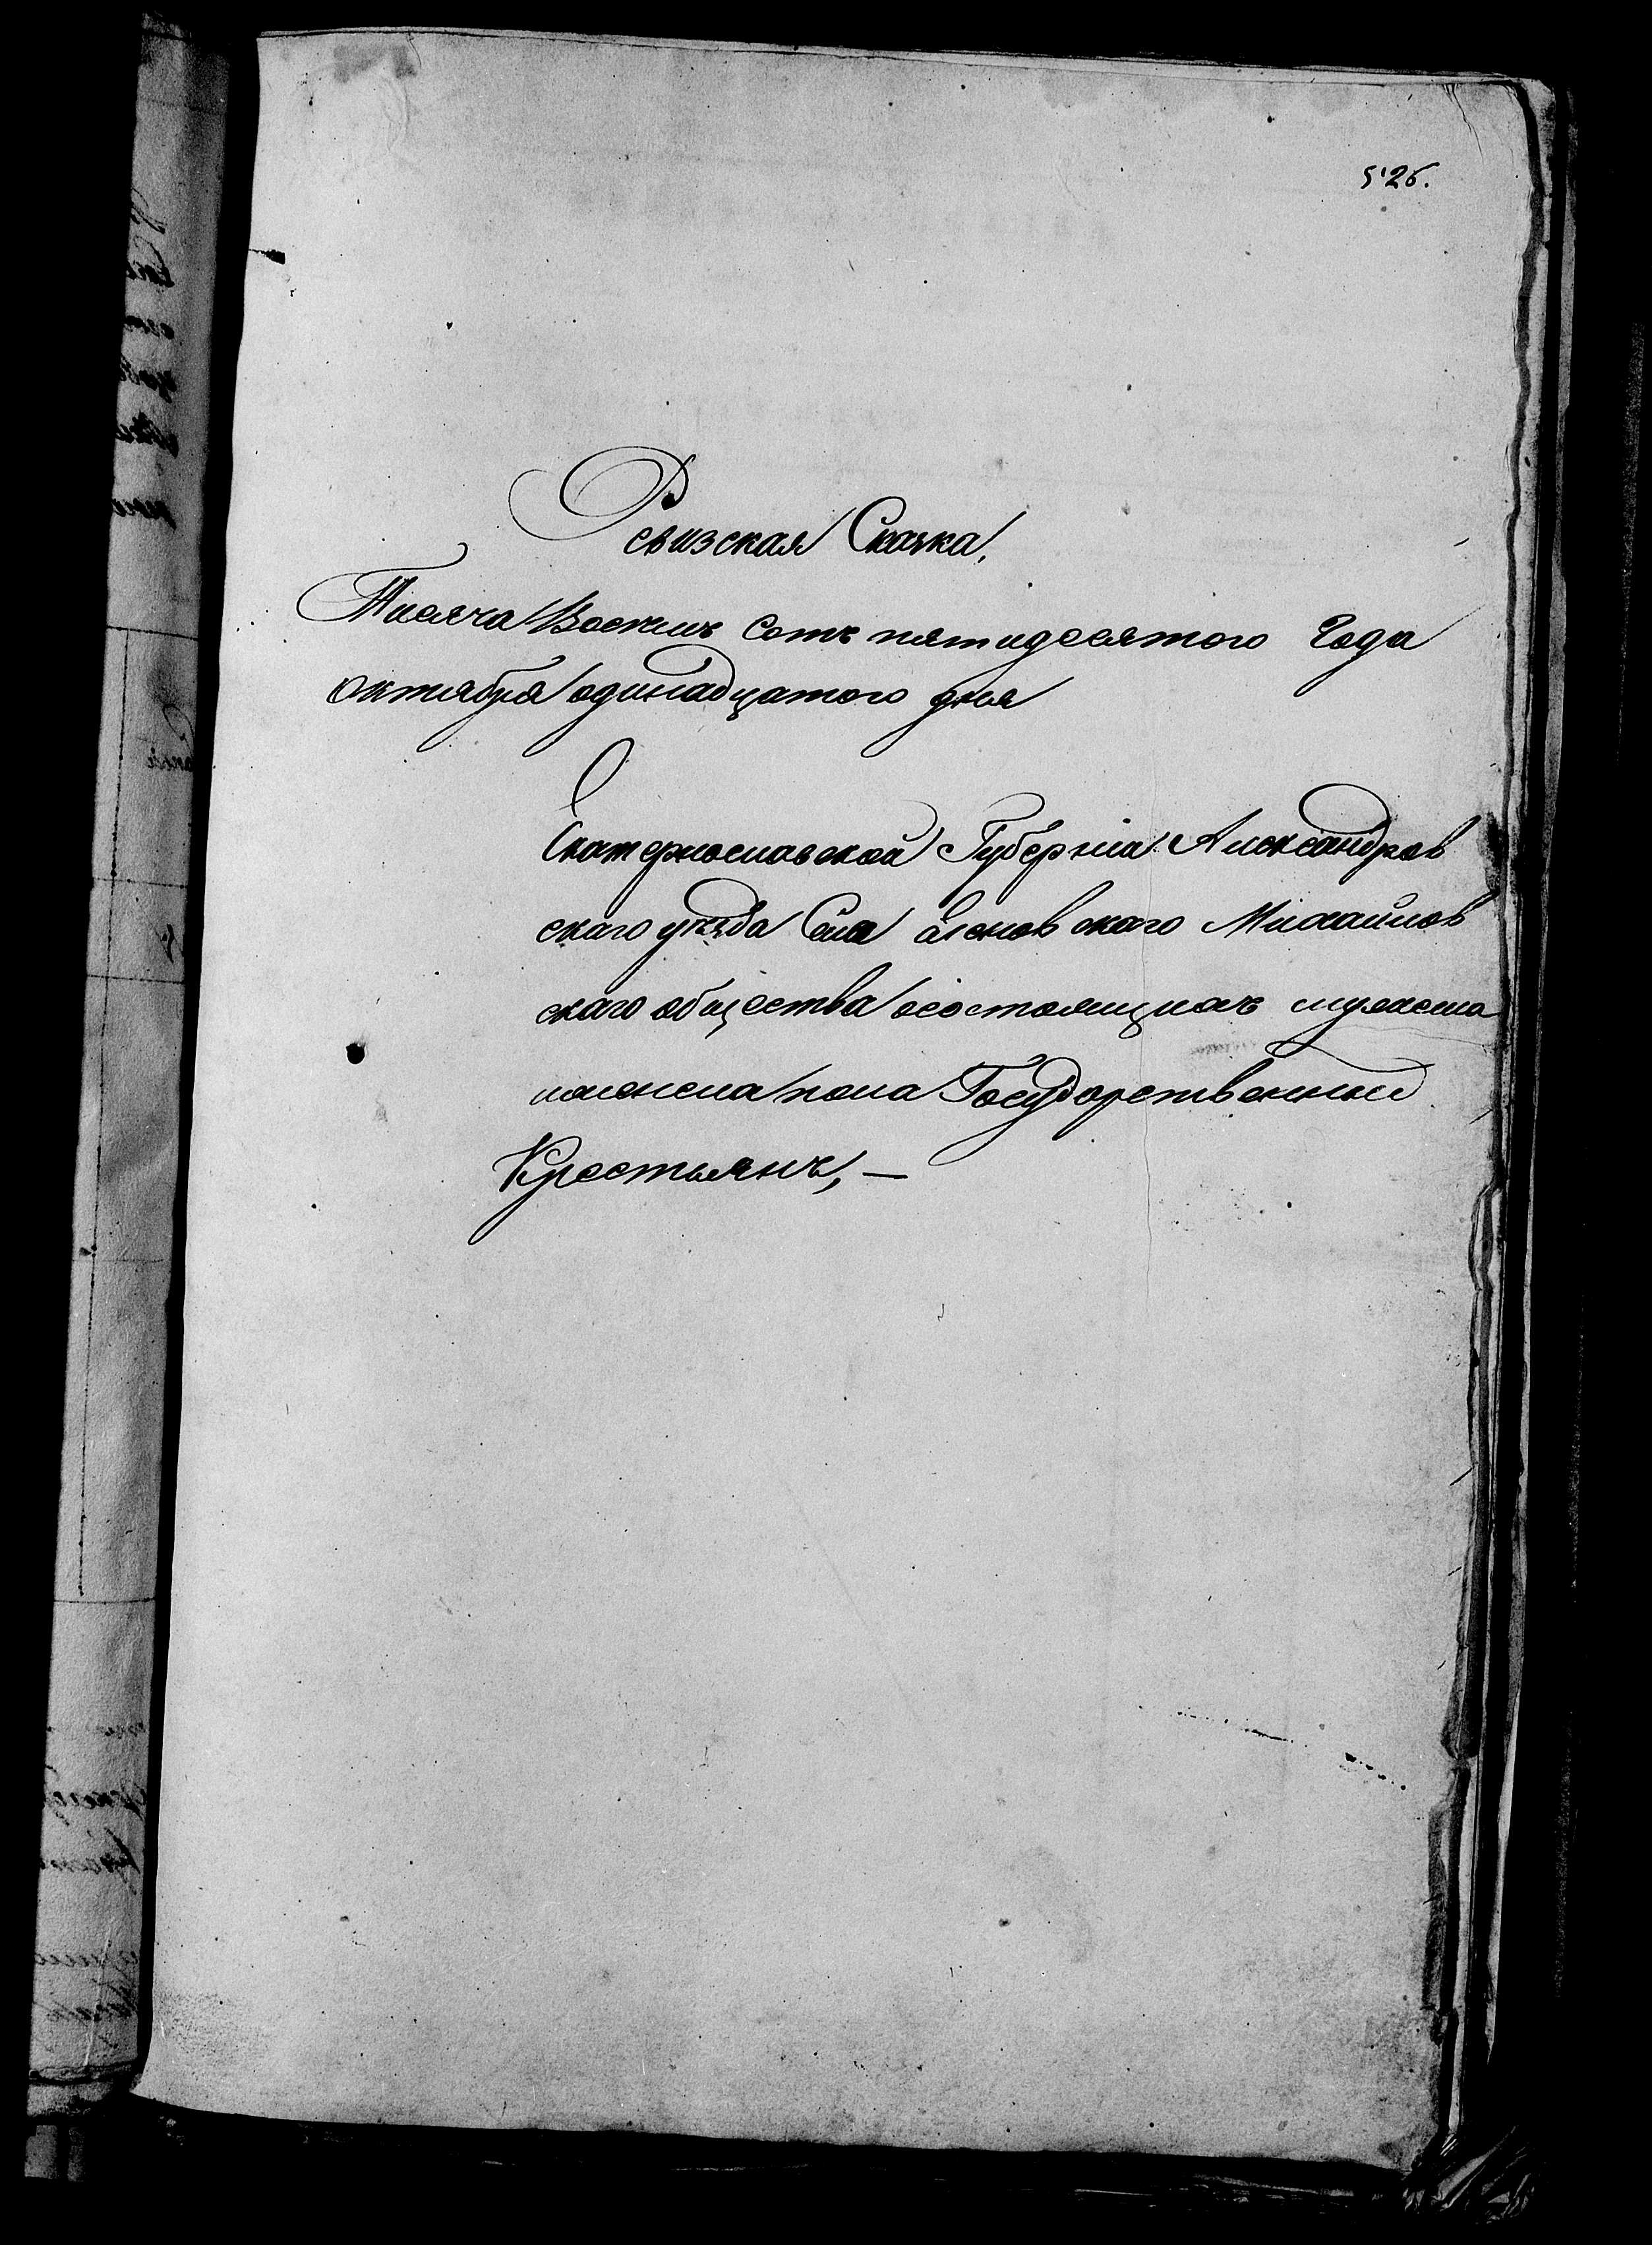 526.
Ревизская Сказка,
Тисяча Восемь Сотъ пятидесятого Года
октября одинадцатого дня
Екатеринославской Губерніи Александров
скаго уѣзда Села Михайлов
скаго общества состоящихъ мужеска
и женска пола Государственныи
Крестьянъ, —